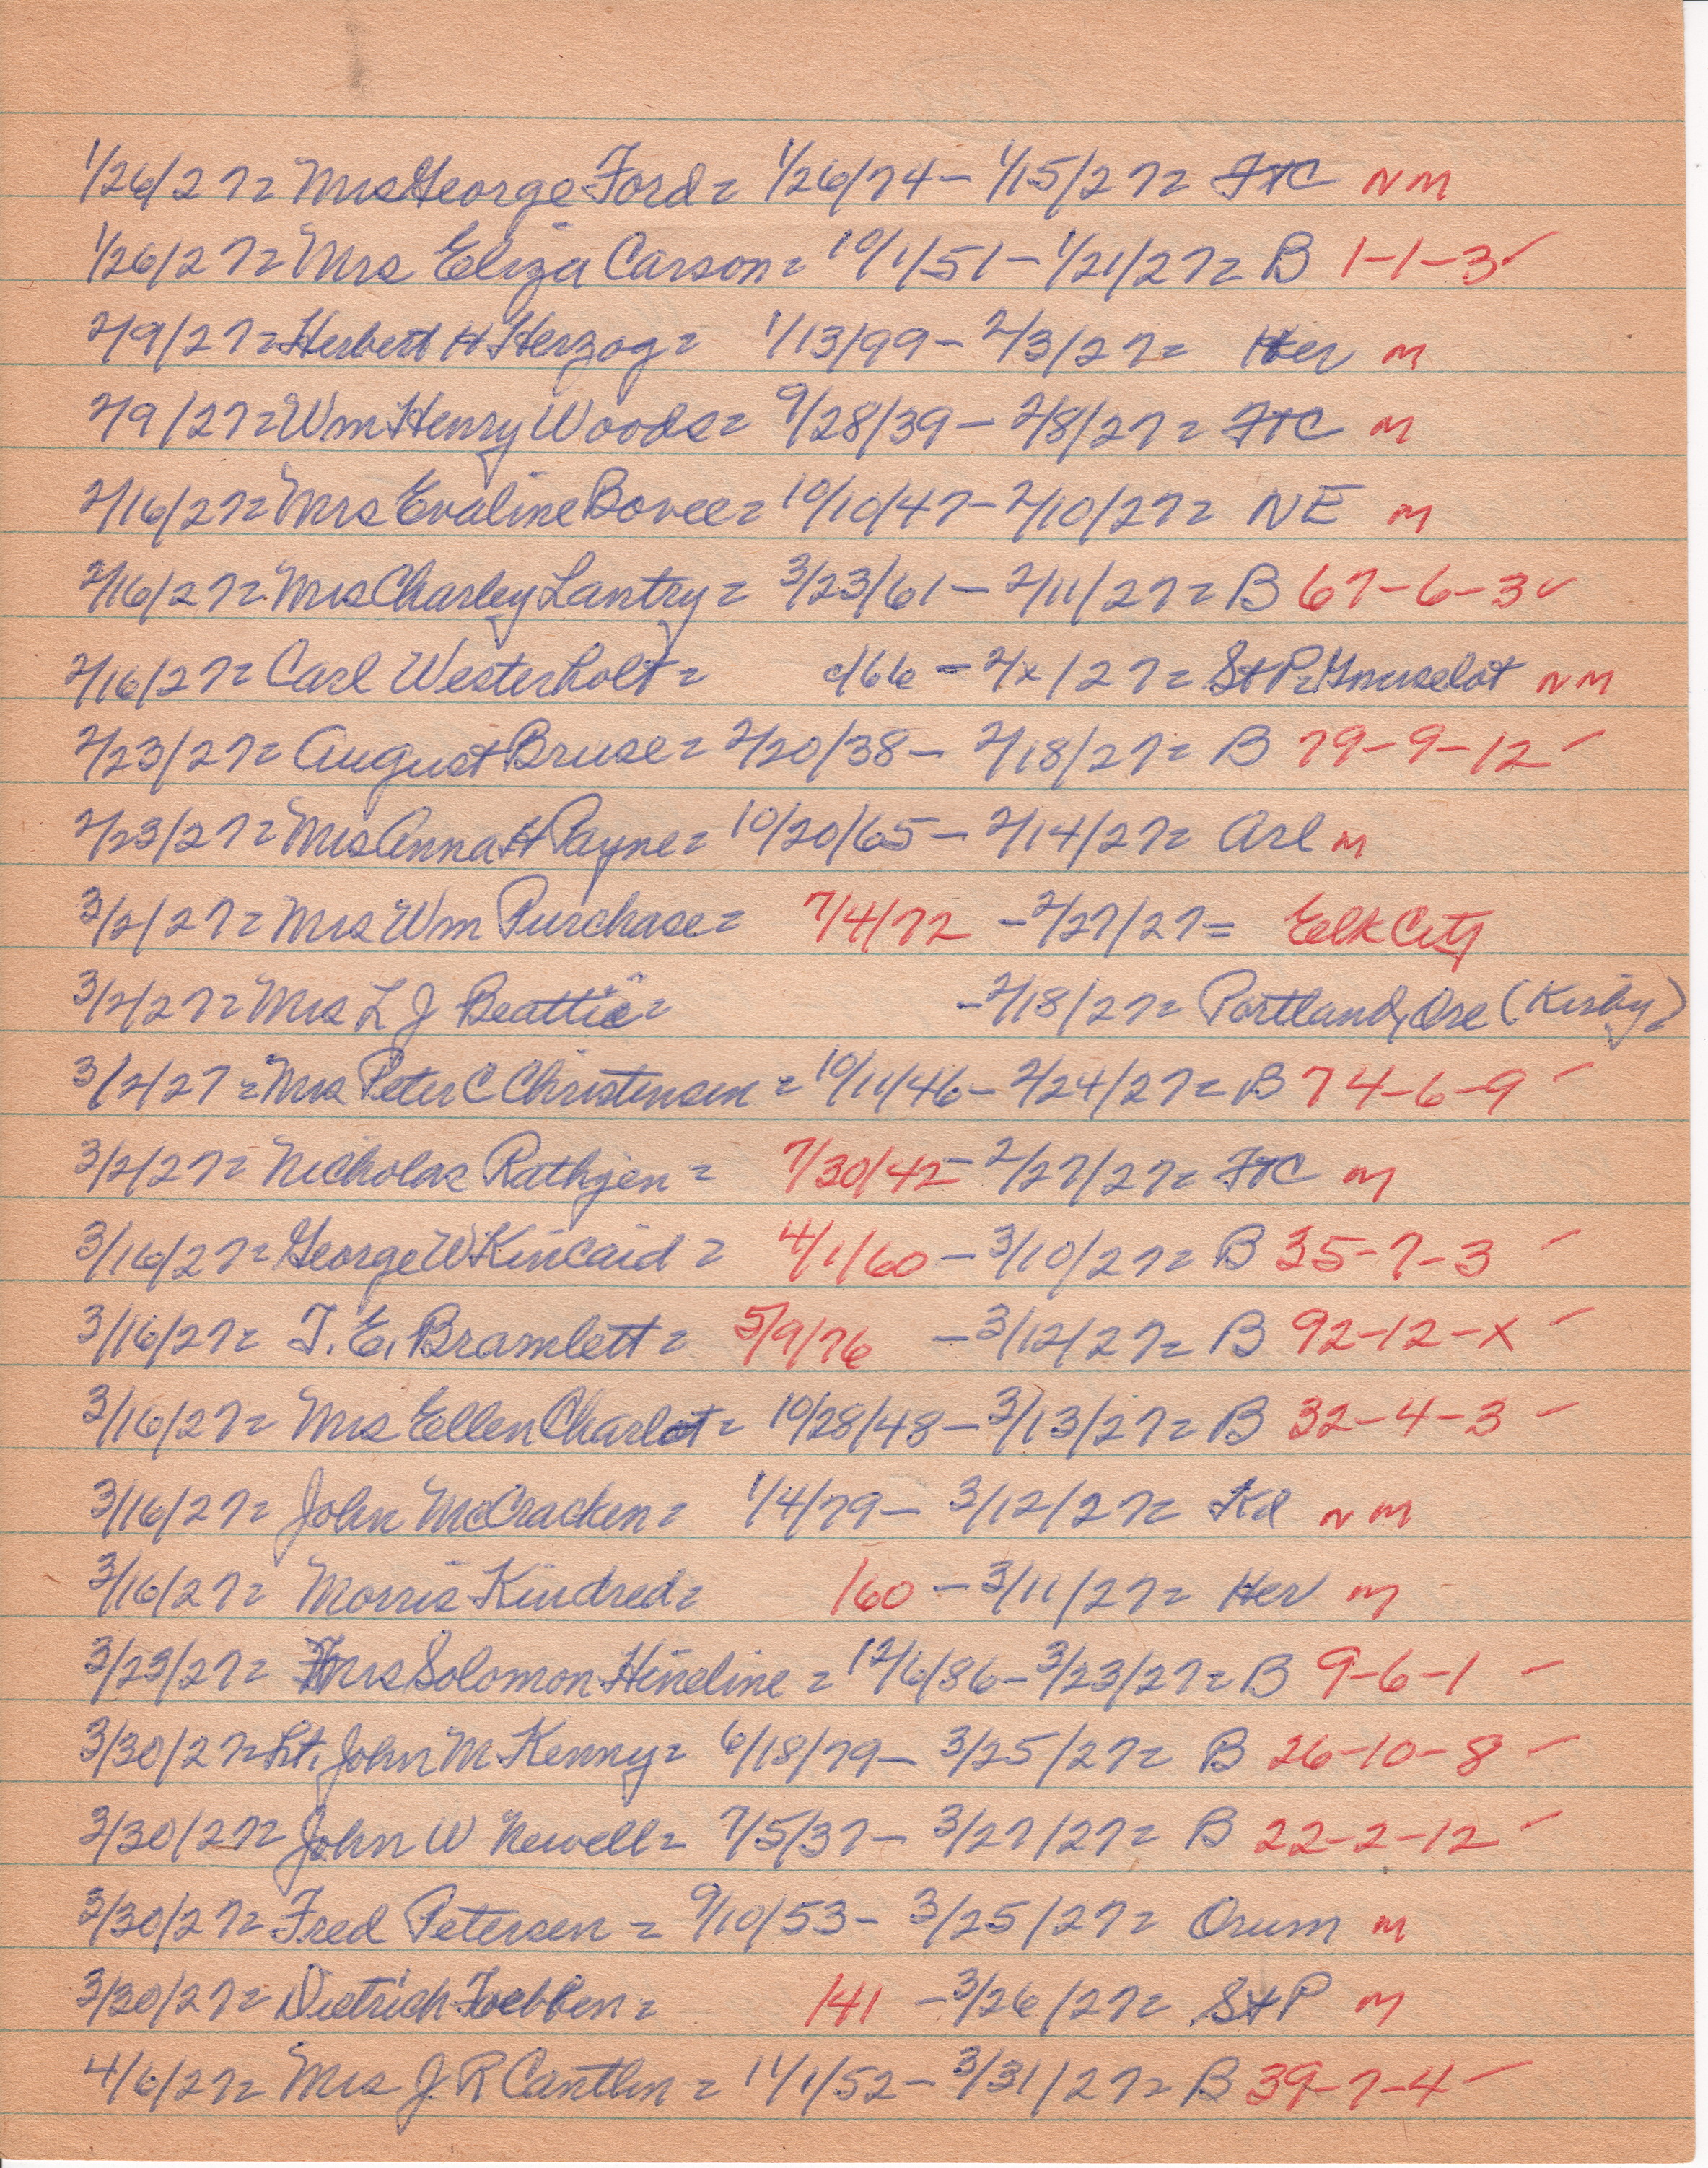 1/26/27= Mrs George Ford= 1/26/74- 1/15/27= FTC NM
1/26/27= Mrs Eliza Carson= 10/1/51- 1/21/27= B 1-1-3✓
2/9/27= Herbert H Herzog= 1/13/99- 2/3/27= Her M
2/9/27= Wm Henry Woods= 9/28/39- 2/8/27= FTC M
2/16/27= Mrs Evaline Bovee= 10/10/47- 2/10/27= NE M
2/16/27= Mrs Charley Lantry= 3/23/61- 2/11/27= B 67-6-3✓
2/16/27= Carl Westerholt= c/66- 2/x/27= St P= NM
2/23/27= August Bruse= 2/20/38- 2/18/27= B 79-9-12 ✓
2/23/27= Mrs Anna H Payne= 10/20/65- 2/14/27= Arl M
3/2/27= Mrs Wm Purchase= 7/4/72 -2/27/27= Elk City
3/2/27= Mrs L J Beattie= -2/18/27= Portland, Ore (Kirby)
3/2/27= Mrs Peter C Christensen= 10/11/46- 2/24/27= B 74-6-9 ✓
3/2/27= Nicholas Rathjen= 7/30/42- 2/27/27= FTC M
3/16/27= George W Kincaid= 4/1/60- 3/10/27= B 35-7-3 ✓
3/16/27= T. E. Bramlett= 5/9/76 -3/12/27= B 92-12-X ✓
3/16/27= Mrs Ellen Charlot= 10/28/48- 3/13/27= B 32-4-3 ✓
3/16/27= John McCracken= 1/4/79- 3/12/27= Kd NM
3/16/27= Morris Kindred= /60 -3/11/27= Her M
3/23/27= Mrs Solomon Hineline= 12/6/86- 3/23/27= B 9-6-1 ✓
3/30/27= Lt. John M Kenny= 6/18/79- 3/25/27= B 26-10-8 ✓
3/30/27= John W Newell= 7/5/37- 3/27/27= B 22-2-12 ✓
3/30/27= Fred Petersen= 9/10/53- 3/25/27= Orum M
3/30/27= Dietrich Foebben= /41 -3/26/27= St P M
4/6/27= Mrs J R Cantlin= 11/1/52- 3/31/27= B 39-7-4 ✓